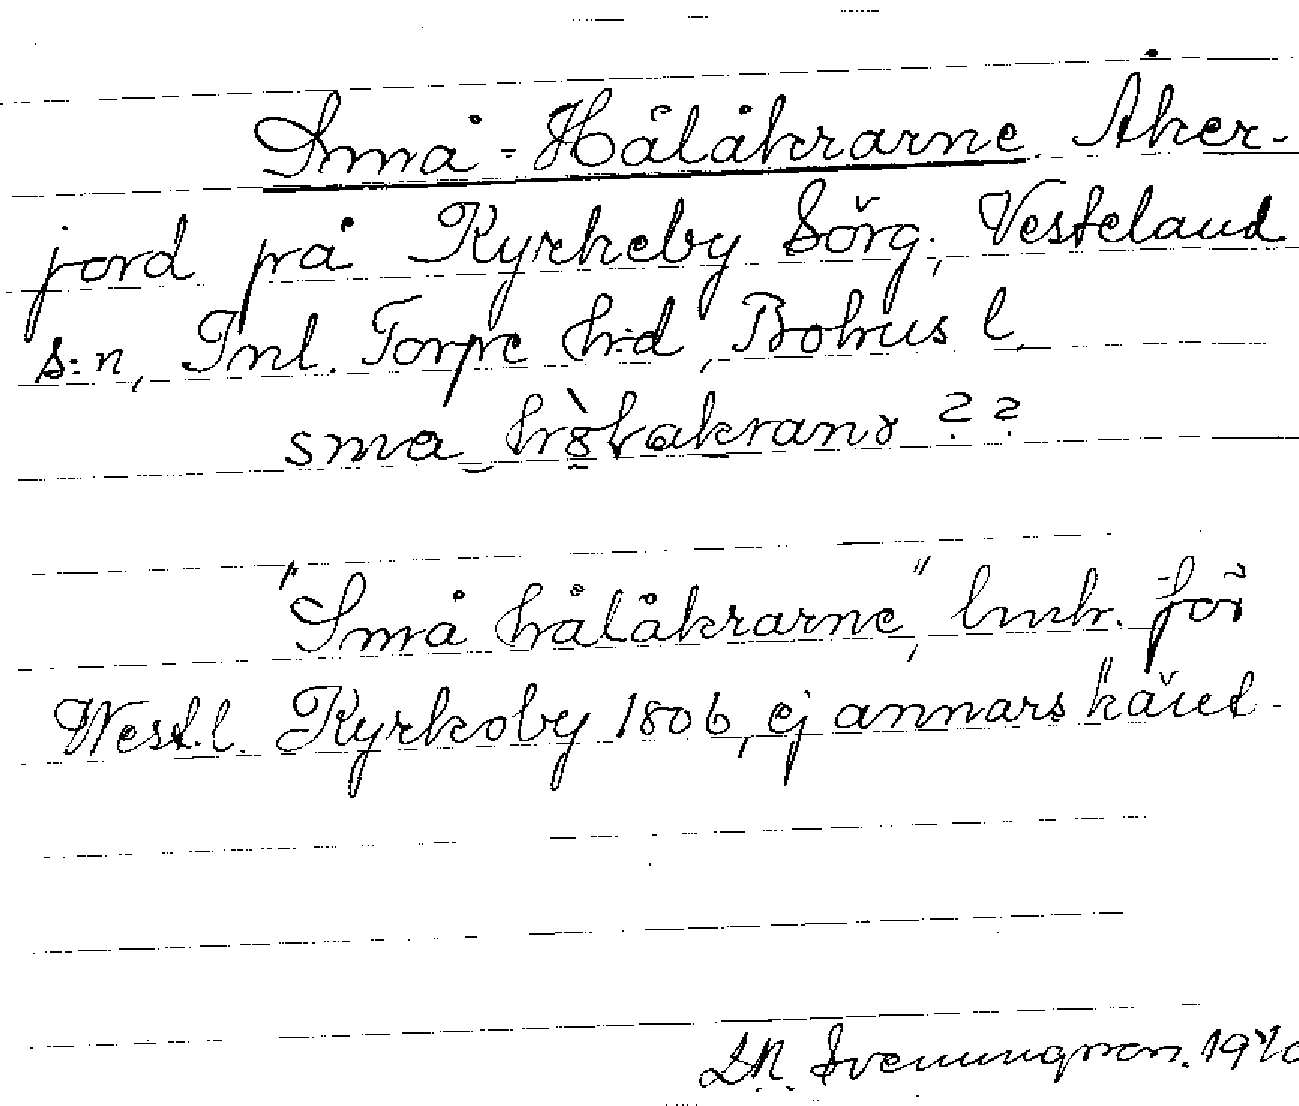 Små-Hålåkrarne Åker-
jord på Kyrkeby Sörg., Vesteland
s:n, Inl. Torpe h:d, Bohus l.
sma
? ?
"Små hålåkrarne", lmh. för
Westl. Kyrkoby 1806, ej annars känt.
D.N. Svenungsson. 19